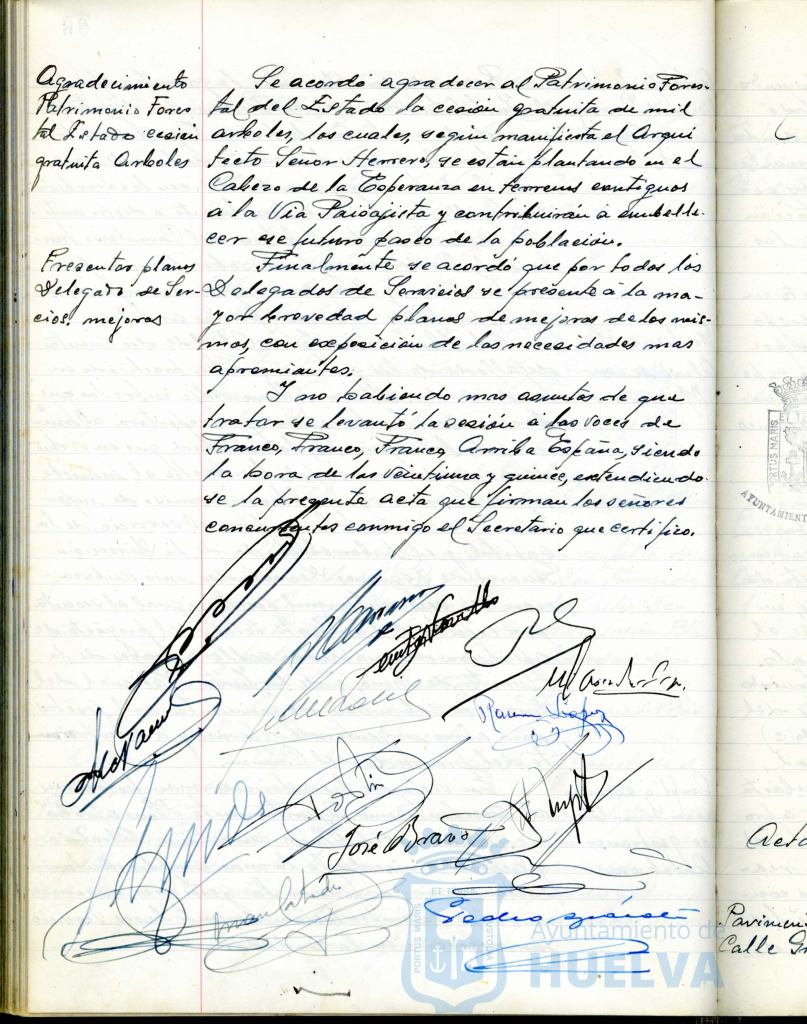 Agradecimiento
Patrimonio Fores
tal Estado cesión
gratuita Arboles
Se acordó agradecer al Patrimonio Fores-
tal del Estado la cesión gratuita de mil
arboles, los cuales, según manifiesta el Arqui
tecto Señor Herrero, se están plantando en el
Cabezo de la Esperanza en terrenos contiguos
á la Via Paisajista y contribuirán á embelle-
cer ese futuro paseo de la población.
Presentar planes
Delegado de Ser-
cios. mejoras
Finalmente se acordó que por todos los
Delegados de Servicios se presente á la ma-
yor brevedad planes de mejoras de los mis-
mos, con exposición de las necesidades mas
apremiantes.
Y no habiendo mas asuntos de que
tratar se levantó la sesión á las voces de
Franco, Franco, Franco, Arriba España, siendo
la hora de las veintiuna y quince, extendiendo-
se la presente acta que firman los señores
concurrentes conmigo el Secretario que certifico.
José Bravo
Pedro
PORTUS MARIS
Ayuntamiento de
HUELVA
PORTUS MARIS
AYUNTAMIENT
Acta
Pavimen
Calle